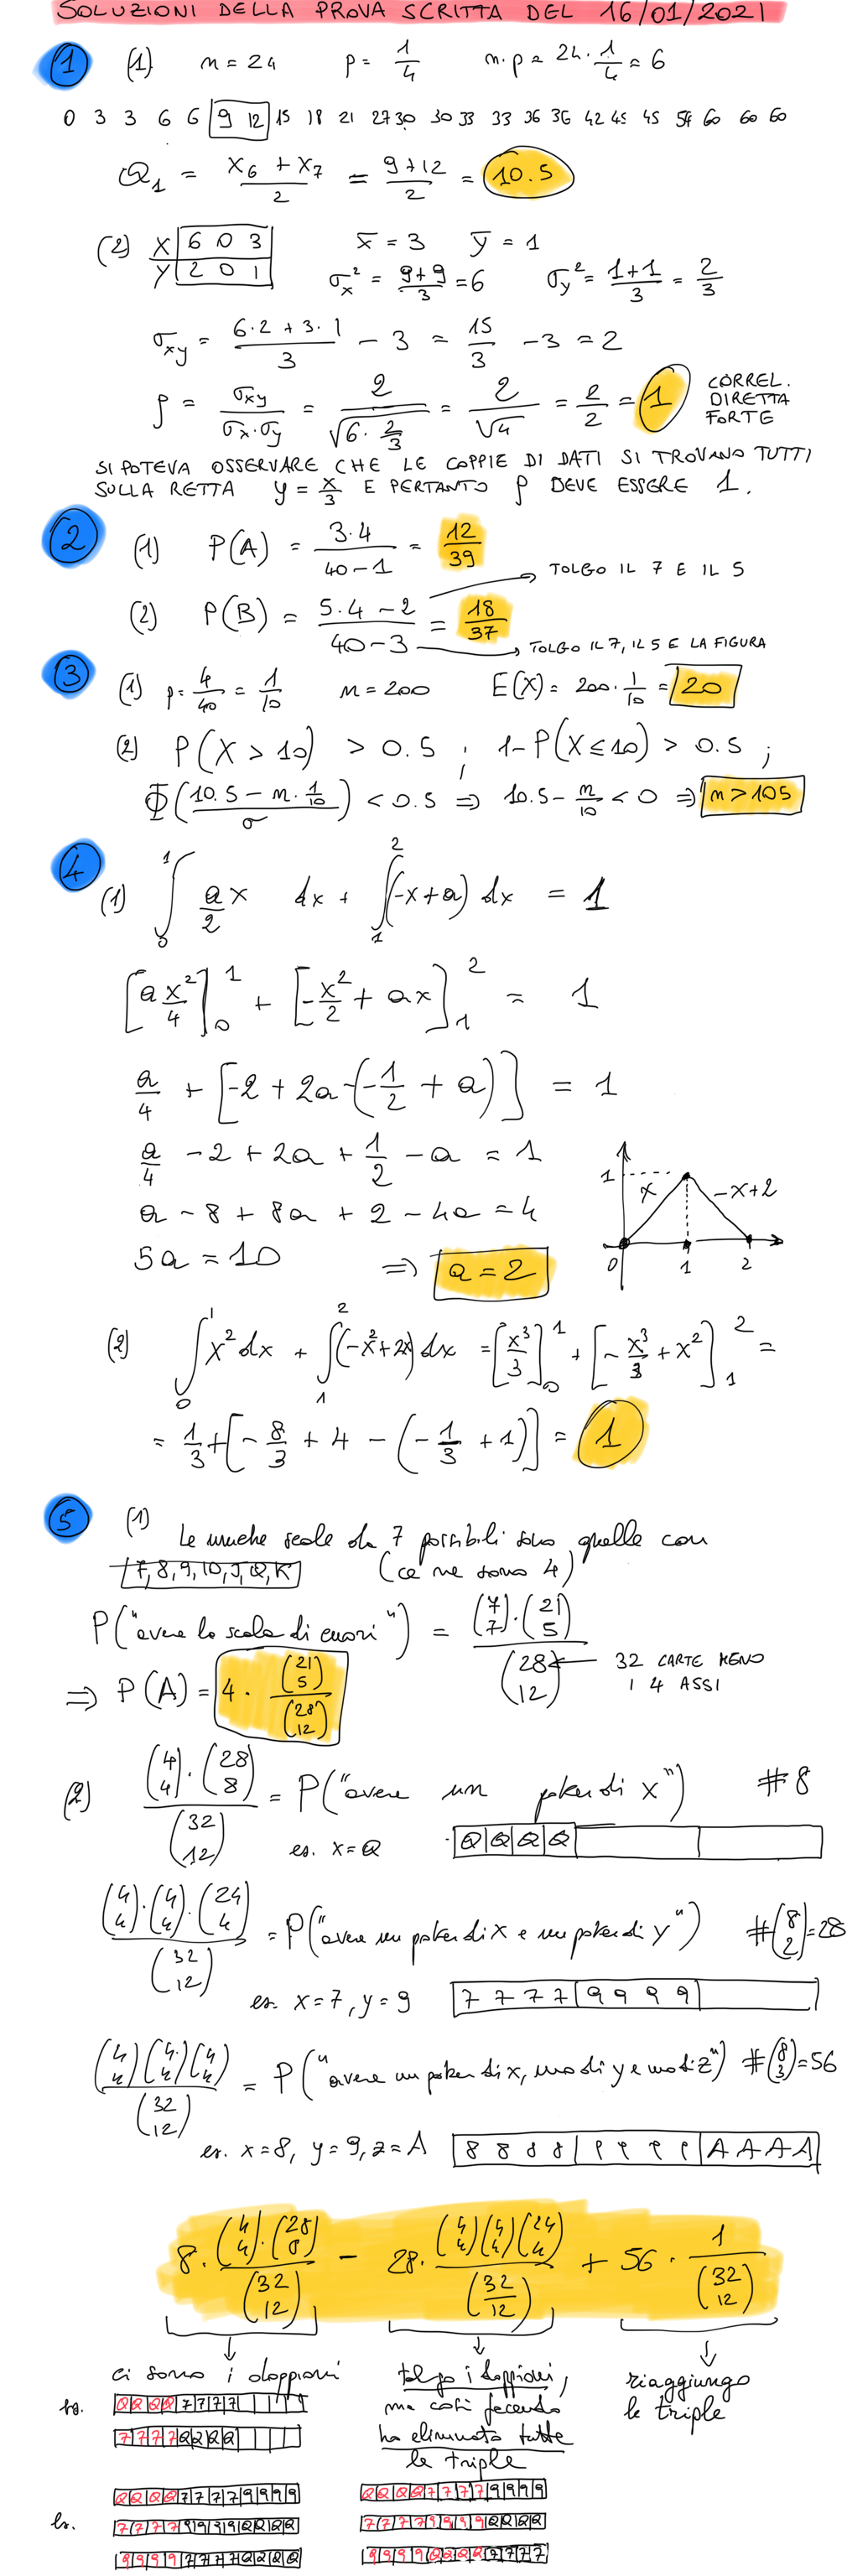 SOLUZIONI DELLA PROVA SCRITTA DEL 16/01/2021
1 (1) n = 24 p = 1/4 n·p = 24·1/4 = 6
0 3 3 6 6 9 12 15 18 21 27 30 30 33 33 36 36 42 45 45 54 60 60 60
Q₁ = (x₆ + x₇)/2 = (9+12)/2 = 10.5
(2) X 6 0 3 x̄ = 3 ȳ = 1
Y 2 0 1 σx² = (9+9)/3 = 6 σy² = (1+1)/3 = 2/3
σxy = (6·2 + 3·1)/3 − 3 = 15/3 − 3 = 2
ρ = σxy/(σx·σy) = 2/√(6·2/3) = 2/√4 = 2/2 = 1 CORREL. DIRETTA FORTE
SI POTEVA OSSERVARE CHE LE COPPIE DI DATI SI TROVANO TUTTI
SULLA RETTA y = x/3 E PERTANTO ρ DEVE ESSERE 1.
2 (1) P(A) = (3·4)/(40−1) = 12/39
TOLGO IL 7 E IL 5
(2) P(B) = (5·4−2)/(40−3) = 18/37
TOLGO IL 7, IL 5 E LA FIGURA
3 (1) p = 4/40 = 1/10 n = 200 E(X) = 200·1/10 = 20
(2) P(X > 10) > 0.5 ; 1−P(X ≤ 10) > 0.5 ;
Φ((10.5 − n·1/10)/σ) < 0.5 ⇒ 10.5 − n/10 < 0 ⇒ n > 105
4 (1) ∫₀¹ a/2 x dx + ∫₁² (−x+a) dx = 1
[a x²/4]₀¹ + [−x²/2 + ax]₁² = 1
a/4 + [−2 + 2a −(−1/2 + a)] = 1
a/4 − 2 + 2a + 1/2 − a = 1
1 x −x+2
a − 8 + 8a + 2 − 4a = 4
5a = 10 ⇒ a = 2
0 1 2
(2) ∫₀¹ x² dx + ∫₁² (−x²+2x) dx = [x³/3]₀¹ + [−x³/3 + x²]₁² =
= 1/3 + [−8/3 + 4 − (−1/3 + 1)] = 1
5 (1) Le uniche scale da 7 possibili sono quelle con
7, 8, 9, 10, J, Q, K (ce ne sono 4)
P("avere la scala di cuori") = (7 7)·(21 5)/(28 12) 32 CARTE MENO I 4 ASSI
⇒ P(A) = 4 · (21 5)/(28 12)
(2) (4 4)·(28 8)/(32 12) = P("avere un poker di x") #8
es. x = Q Q Q Q Q
(4 4)·(4 4)·(24 4)/(32 12) = P("avere un poker di x e un poker di y") #(8 2) = 28
es. x = 7, y = 9 7 7 7 7 9 9 9 9
(4 4)(4 4)(4 4)/(32 12) = P("avere un poker di x, uno di y e uno di z") #(8 3) = 56
es. x = 8, y = 9, z = A 8 8 8 8 9 9 9 9 A A A A
8 · (4 4)·(28 8)/(32 12) − 28 · (4 4)(4 4)(24 4)/(32 12) + 56 · 1/(32 12)
ci sono i doppioni
tolgo i doppioni,
ma così facendo
ho eliminato tutte
le triple
riaggiungo
le triple
es. Q Q Q Q 7 7 7 7
7 7 7 7 Q Q Q Q
Q Q Q Q 7 7 7 7 9 9 9 9 Q Q Q Q 7 7 7 7 9 9 9 9
es. 7 7 7 7 9 9 9 9 Q Q Q Q 7 7 7 7 9 9 9 9 Q Q Q Q
9 9 9 9 7 7 7 7 Q Q Q Q 9 9 9 9 Q Q Q Q 7 7 7 7